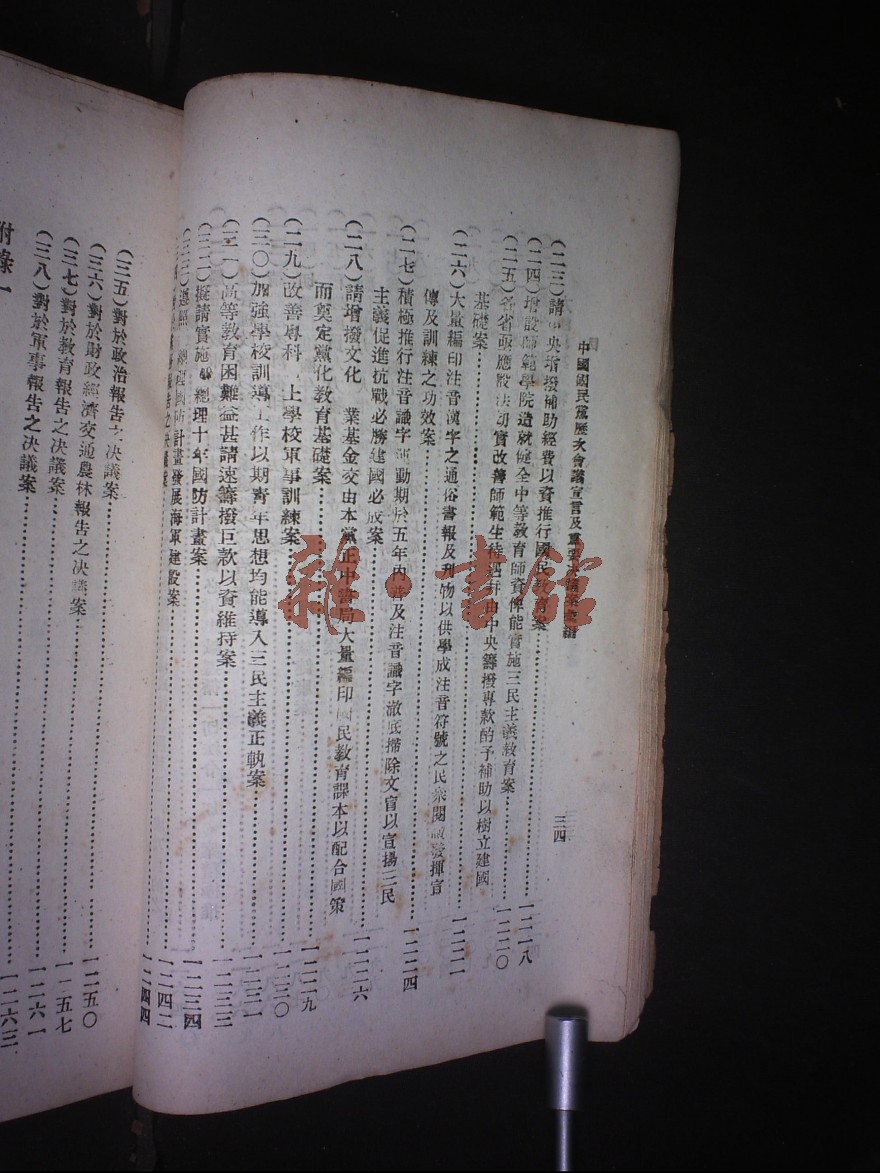 中國國民黨歷次會議宣言及
三四
(二三)請中央增撥補助經費以資推行國民教育案……一二一八
(二四)增設師範學院造就健全中等教育師資俾能實施三民主義教育案……一二二〇
(二五)各省亟應設法切實改善師範生待遇并由中央籌撥專款酌予補助以樹立建國
基礎案……一二二一
(二六)大量編印注音漢字之通俗書報及刊物以供學成注音符號之民衆閱讀發揮宣
傳及訓練之功效案……一二二四
(二七)積極推行注音識字運動期於五年內普及注音識字澈底掃除文盲以宣揚三民
主義促進抗戰必勝建國必成案……一二二六
(二八)請增撥文化 業基金交由本黨正中書局大量編印國民教育課本以配合國策
而奠定黨化教育基礎案……一二二九
(二九)改善專科 上學校軍事訓練案……一二三〇
(三〇)加強學校訓導工作以期青年思想均能導入三民主義正軌案……一二三一
(三一)高等教育困難益甚請速籌撥巨款以資維持案……一二三三
(三二)擬請實施 總理十年國防計畫案……一二三四
(三三)遵照 總理國防計畫發展海軍建設案……一二四二
告之決議案……一二四四
(三五)對於政治報告之決議案……一二五〇
(三六)對於財政經濟交通農林報告之決議案……一二五七
(三七)對於教育報告之決議案……一二六一
(三八)對於軍事報告之決議案……一二六三
附錄一
雜·書館